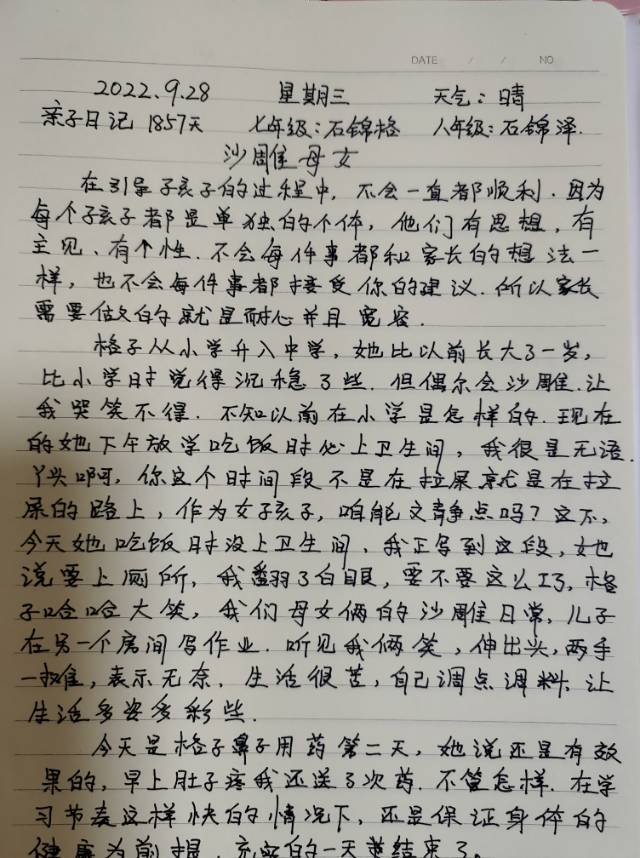 DATE / / NO
2022.9.28 星期三 天气:晴
亲子日记 1857天 七年级:石锦格 八年级:石锦泽.
沙雕母女
在引导孩子的过程中,不会一直都顺利.因为
每个孩子都是单独的个体,他们有思想,有
主见、有个性.不会每件事都和家长的想法一
样,也不会每件事都接受你的建议.所以家长
需要做的就是耐心并且宽容.
格子从小学升入中学,她比以前长大了一岁,
比小学时觉得沉稳了些.但偶尔会沙雕.让
我哭笑不得.不知以前在小学是怎样的.现在
的她下午放学吃饭时必上卫生间,我很是无语.
丫头啊,你这个时间段不是在拉屎就是在拉
屎的路上,作为女孩子,咱能文静点吗?这不,
今天她吃饭时没上卫生间,我正写到这段,她
说要上厕所,我翻了白眼,要不要这么巧,格
子哈哈大笑,我们母女俩的沙雕日常,儿子
在另一个房间写作业.听见我俩笑,伸出头,两手
一摊,表示无奈.生活很苦,自己调点调料,让
生活多姿多彩些.
今天是格子鼻子用药第二天,她说还是有效
果的,早上肚子疼我还送了次药.不管怎样.在学
习节奏这样快的情况下,还是保证身体的
健康为前提,充实的一天又结束了。